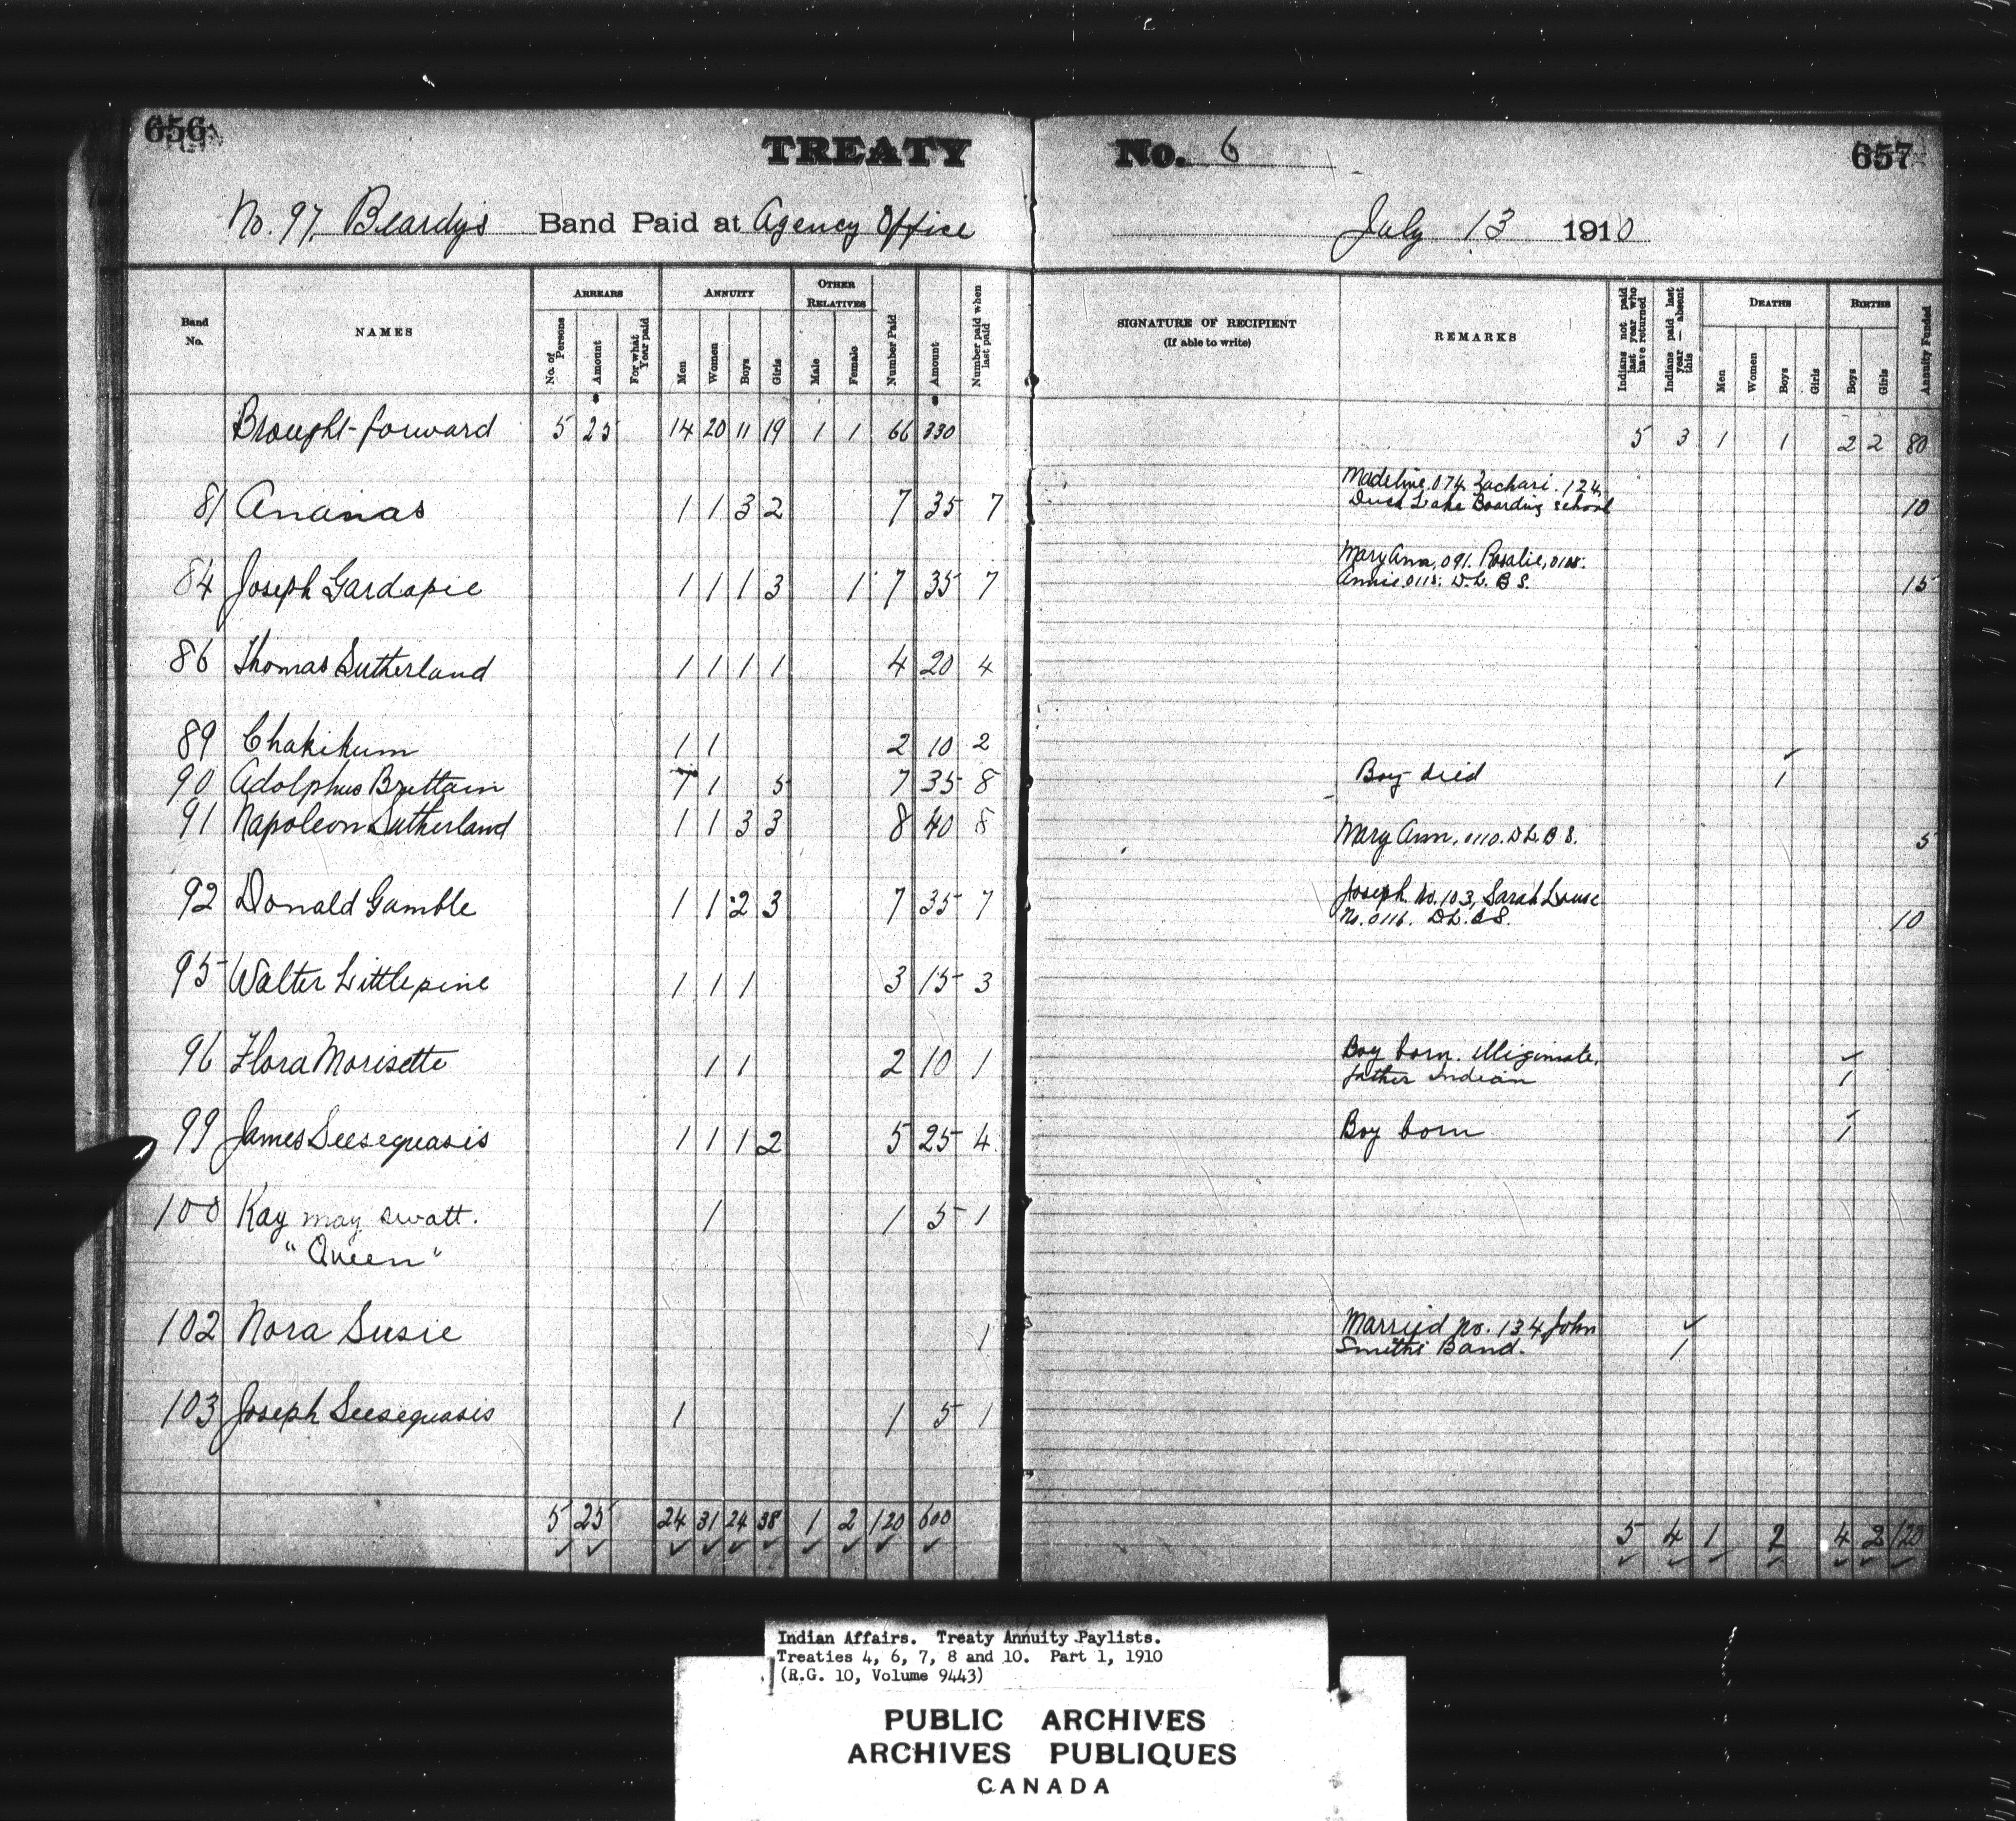 656
TREATY No. 6
657
No. 97. Beardy's Band Paid at Agency Office July 13 1910
Band No.
NAMES
ARREARS
No. of Persons
Amount
For what Year paid
ANNUITY
Men
Women
Boys
Girls
OTHER RELATIVES
Male
Female
Number Paid
Amount
Number paid when last paid
SIGNATURE OF RECIPIENT
(If able to write)
REMARKS
Indians not paid last year who have returned
Indians paid last year — absent this
DEATHS
Men
Women
Boys
Girls
BIRTHS
Boys
Girls
Annuity Funded
Brought forward 5 25 14 20 11 19 1 1 66 330 5 3 1 1 2 2 80
Madeline, 074, Zachari. 124,
81 Ananas 1 1 3 2 7 35 7 Duck Lake Boarding School 10
Mary Ann, 091. Rosalie,
84 Joseph Gardapie 1 1 1 3 1 7 35 7 Annie, 0115. D.L. B S. 15
86 Thomas Sutherland 1 1 1 1 4 20 4
89 Chakikum 1 1 2 10 2
90 Adolphus Bruttain 1 1 5 7 35 8 Boy died 1
91 Napoleon Sutherland 1 1 3 3 8 40 8 Mary Ann, 0110. D.L. B S. 5
Joseph No. 103, Sarah Louise
92 Donald Gamble 1 1 2 3 7 35 7 No. 0116. D.L. B S. 10
95 Walter Littlepine 1 1 1 3 15 3
Boy born. Illigimate,
96 Flora Morisette 1 1 2 10 1 father Indian 1
99 James Seesequasis 1 1 1 2 5 25 4 Boy born 1
100 Kay may swatt. 1 1 5 1
"Queen"
102 Nora Susie 1 Married No. 134 John
Smith's Band. 1
103 Joseph Seesequasis 1 1 5 1
5 25 24 31 24 38 1 2 120 600 5 4 1 2 4 2 120
Indian Affairs. Treaty Annuity Paylists.
Treaties 4, 6, 7, 8 and 10. Part 1, 1910
(R.G. 10, Volume 9443)
PUBLIC ARCHIVES
ARCHIVES PUBLIQUES
CANADA